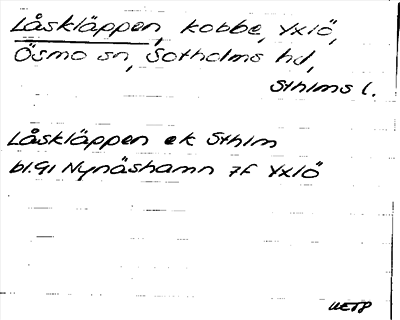 Låskläppen, kobbe, Yxlö,
Ösmo sn, Sotholms hd,
Sthlms l.
Låskläppen ek Sthlm
bl.91 Nynäshamn 7f Yxlö